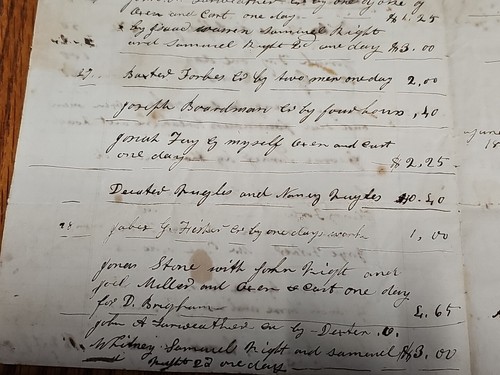 Oxen and Cart one day $1.25
by Isaac Warren Samuel Night
and Samuel Night 2d one day $3.00
27 Baxter Forbes Cr by two men one day 2,00
Joseph Boardman Cr by four hours ,40
Josiah Fay & myself Oxen and Cart
one day $2,25
and Nancy 0.40
28 Jaber G. Fisher Cr by one days work 1,00
Jonas Stone with John Night and
Joel Miller and Oxen & Cart one day
for D. Brigham 4.65
John A Fairweather Cr by Dexter
Whitney Samuel Night and Samuel $3,00
Night 2d one day
June
18